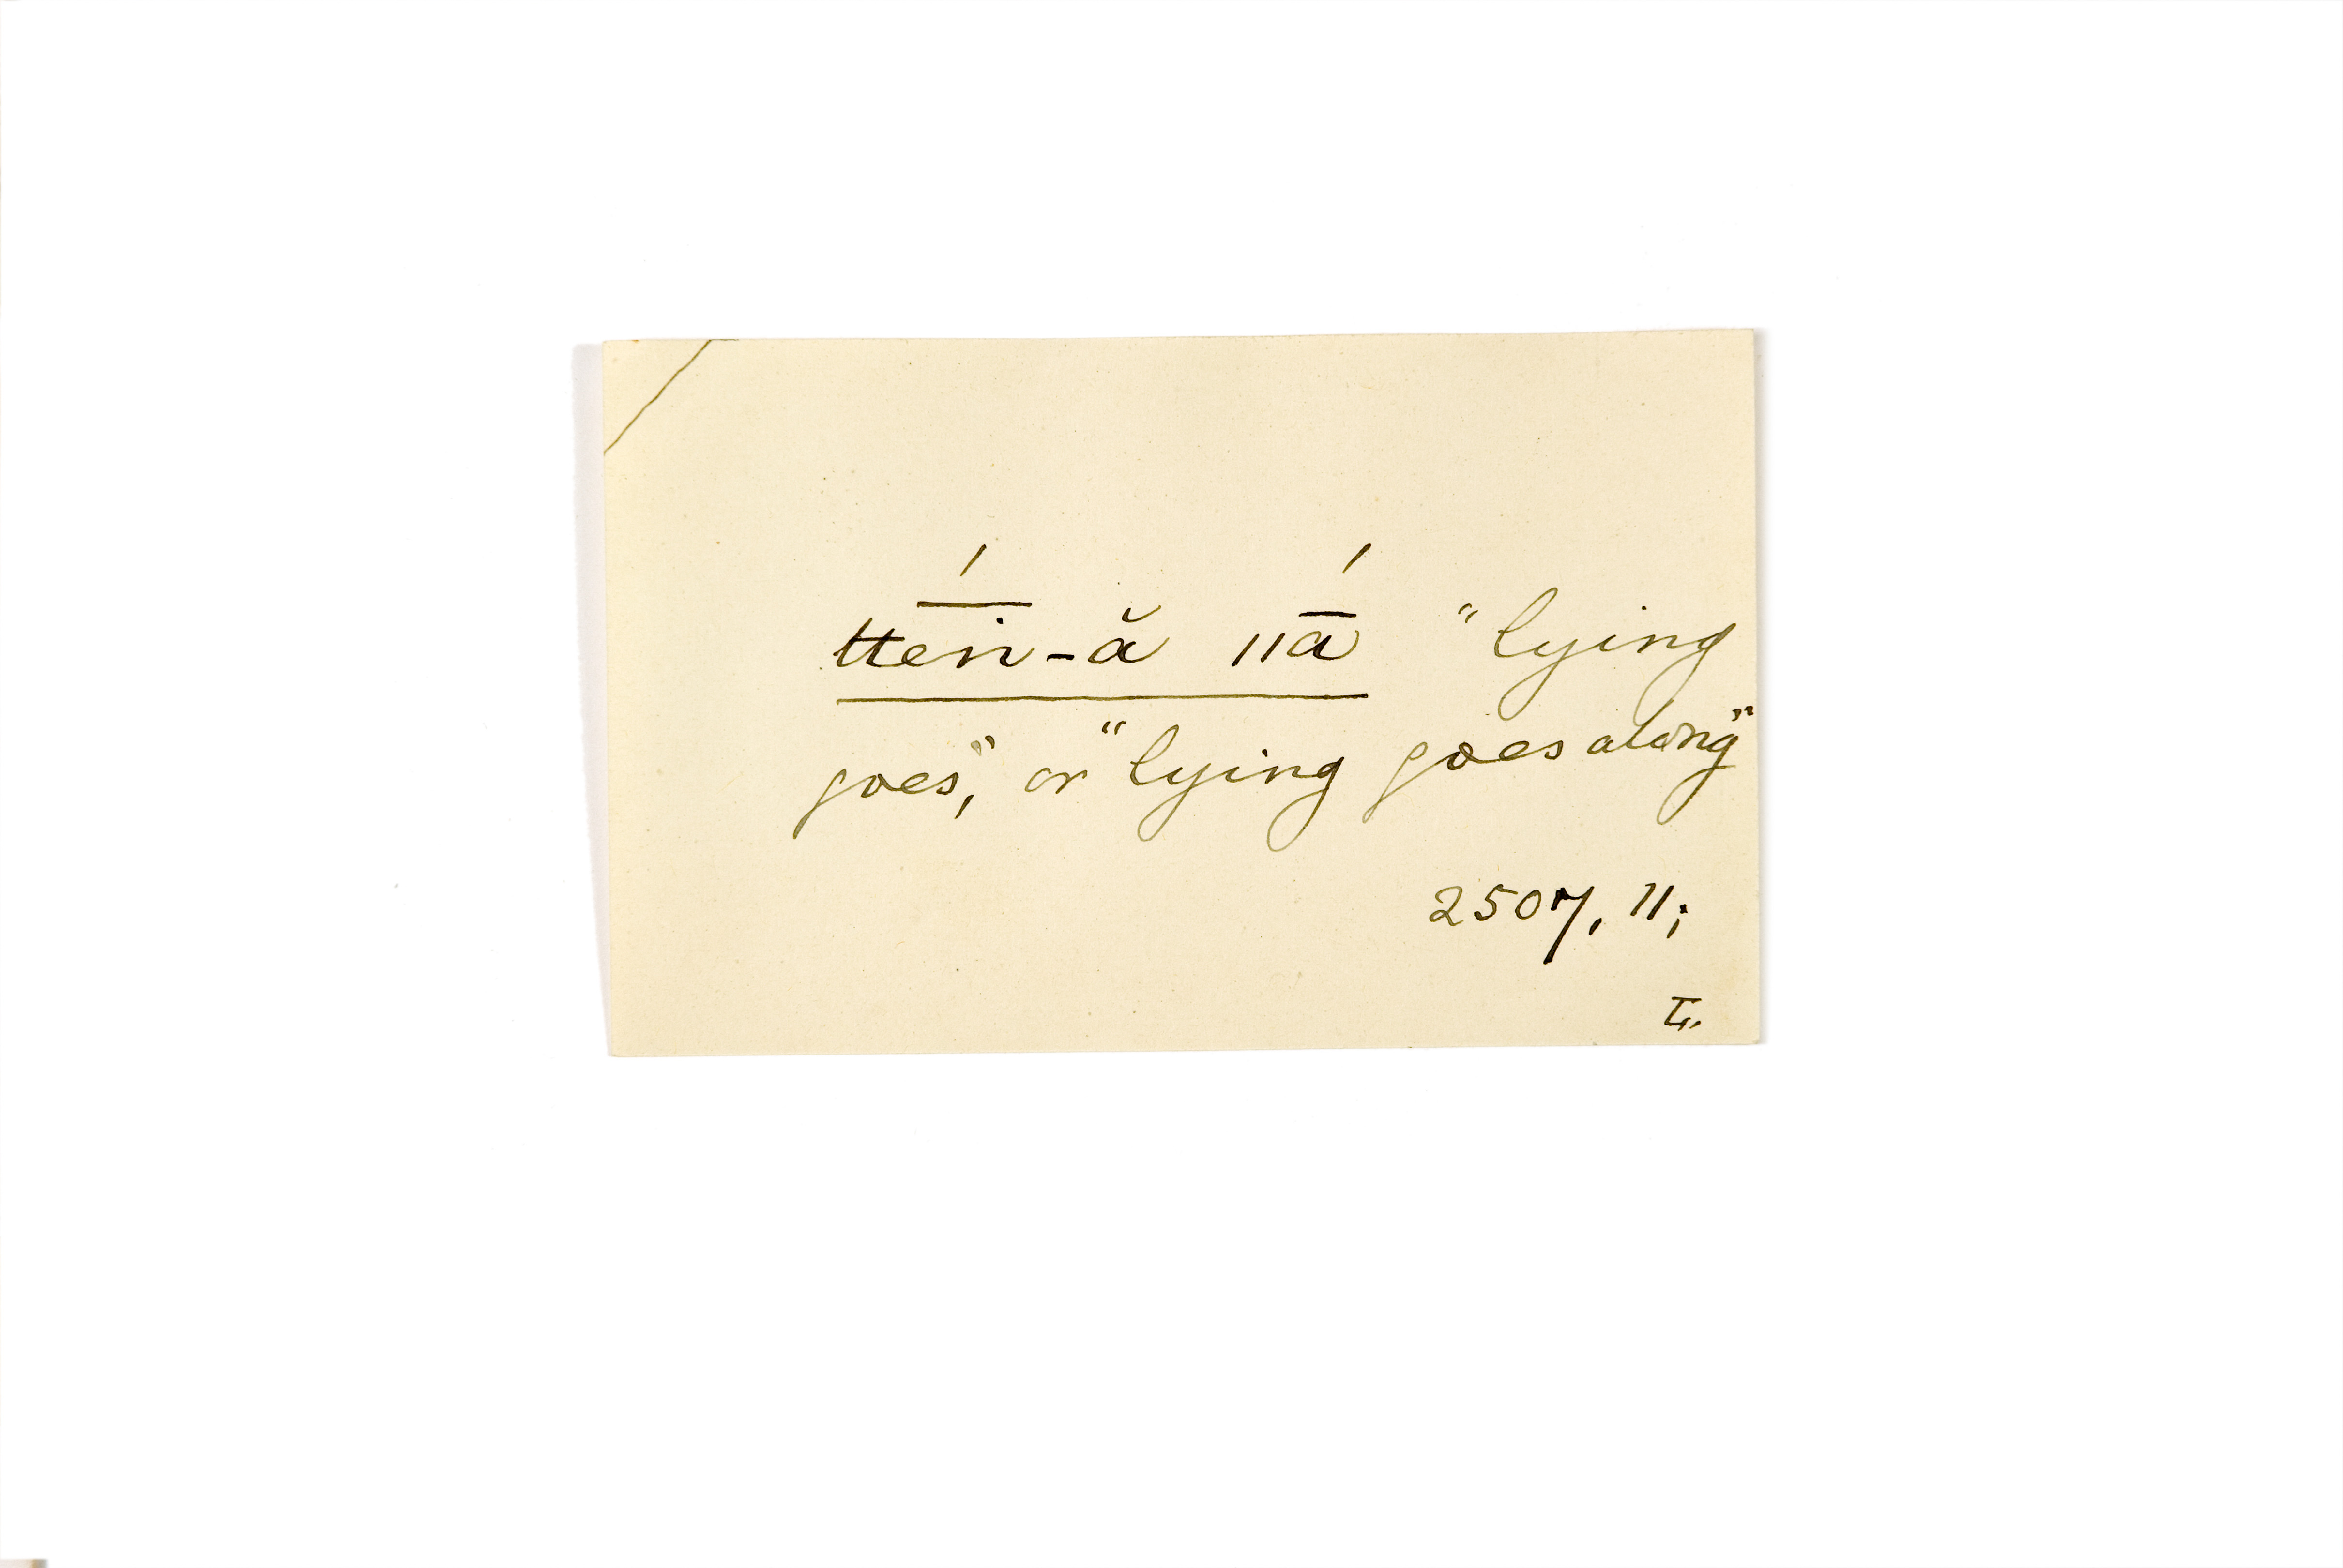 ttḗṅ-ă ǁā́ "lying
goes," or "lying goes along"
2507, 11;
L.